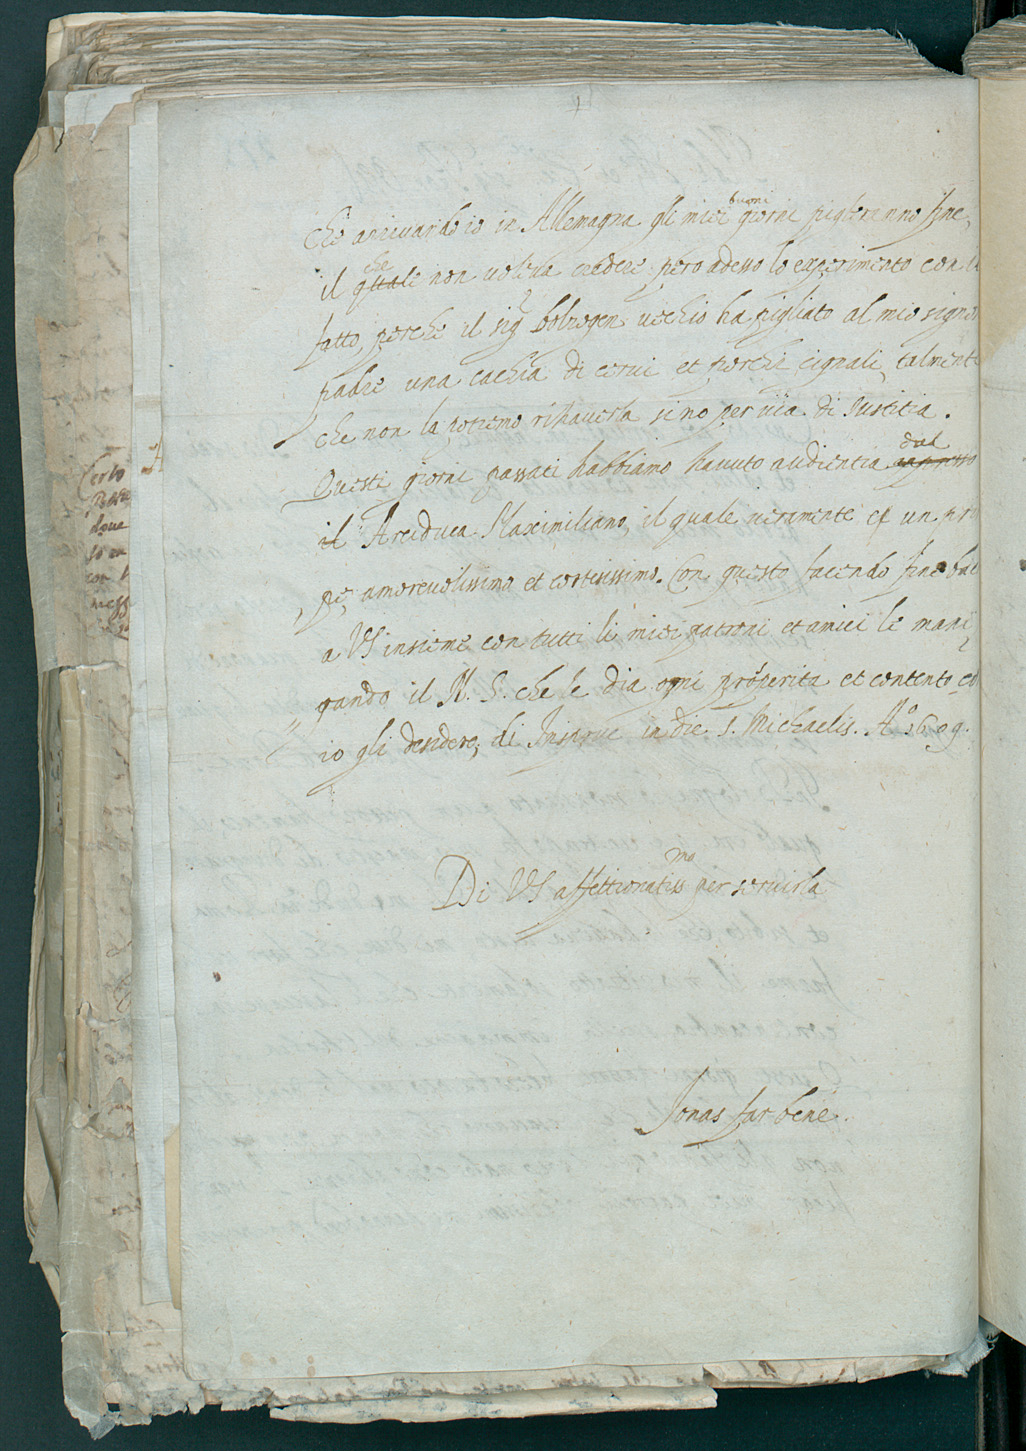 che arrivando io in Allemagna gli miei buoni giorni piglieranno fine,
il che quale non voleva credere, però adesso lo experimento con il
fatto, perche il sigr bolzogen vechio ha pigliato al mio signor
padre una cachia di cervi et porchi cignali, talmente
che non la potremo rihaverla si no per via di Justitia.
Questi giorni passati habbiamo havuto audientia dal appresso
il Arciduca Maximiliano, il quale veramente è un pr
pe, amorevolissimo et cortesissimo. Con questo facendo fine
a VS insieme con tutti li miei patroni et amici le mani
gando il N. S. che le dia ogni prosperita et contento co
io gli desidero, di Insprug in die S. Michaelis. Ao 1609.
Di VS affettionatissmo per servirla
Jonas
Certo
doue
con